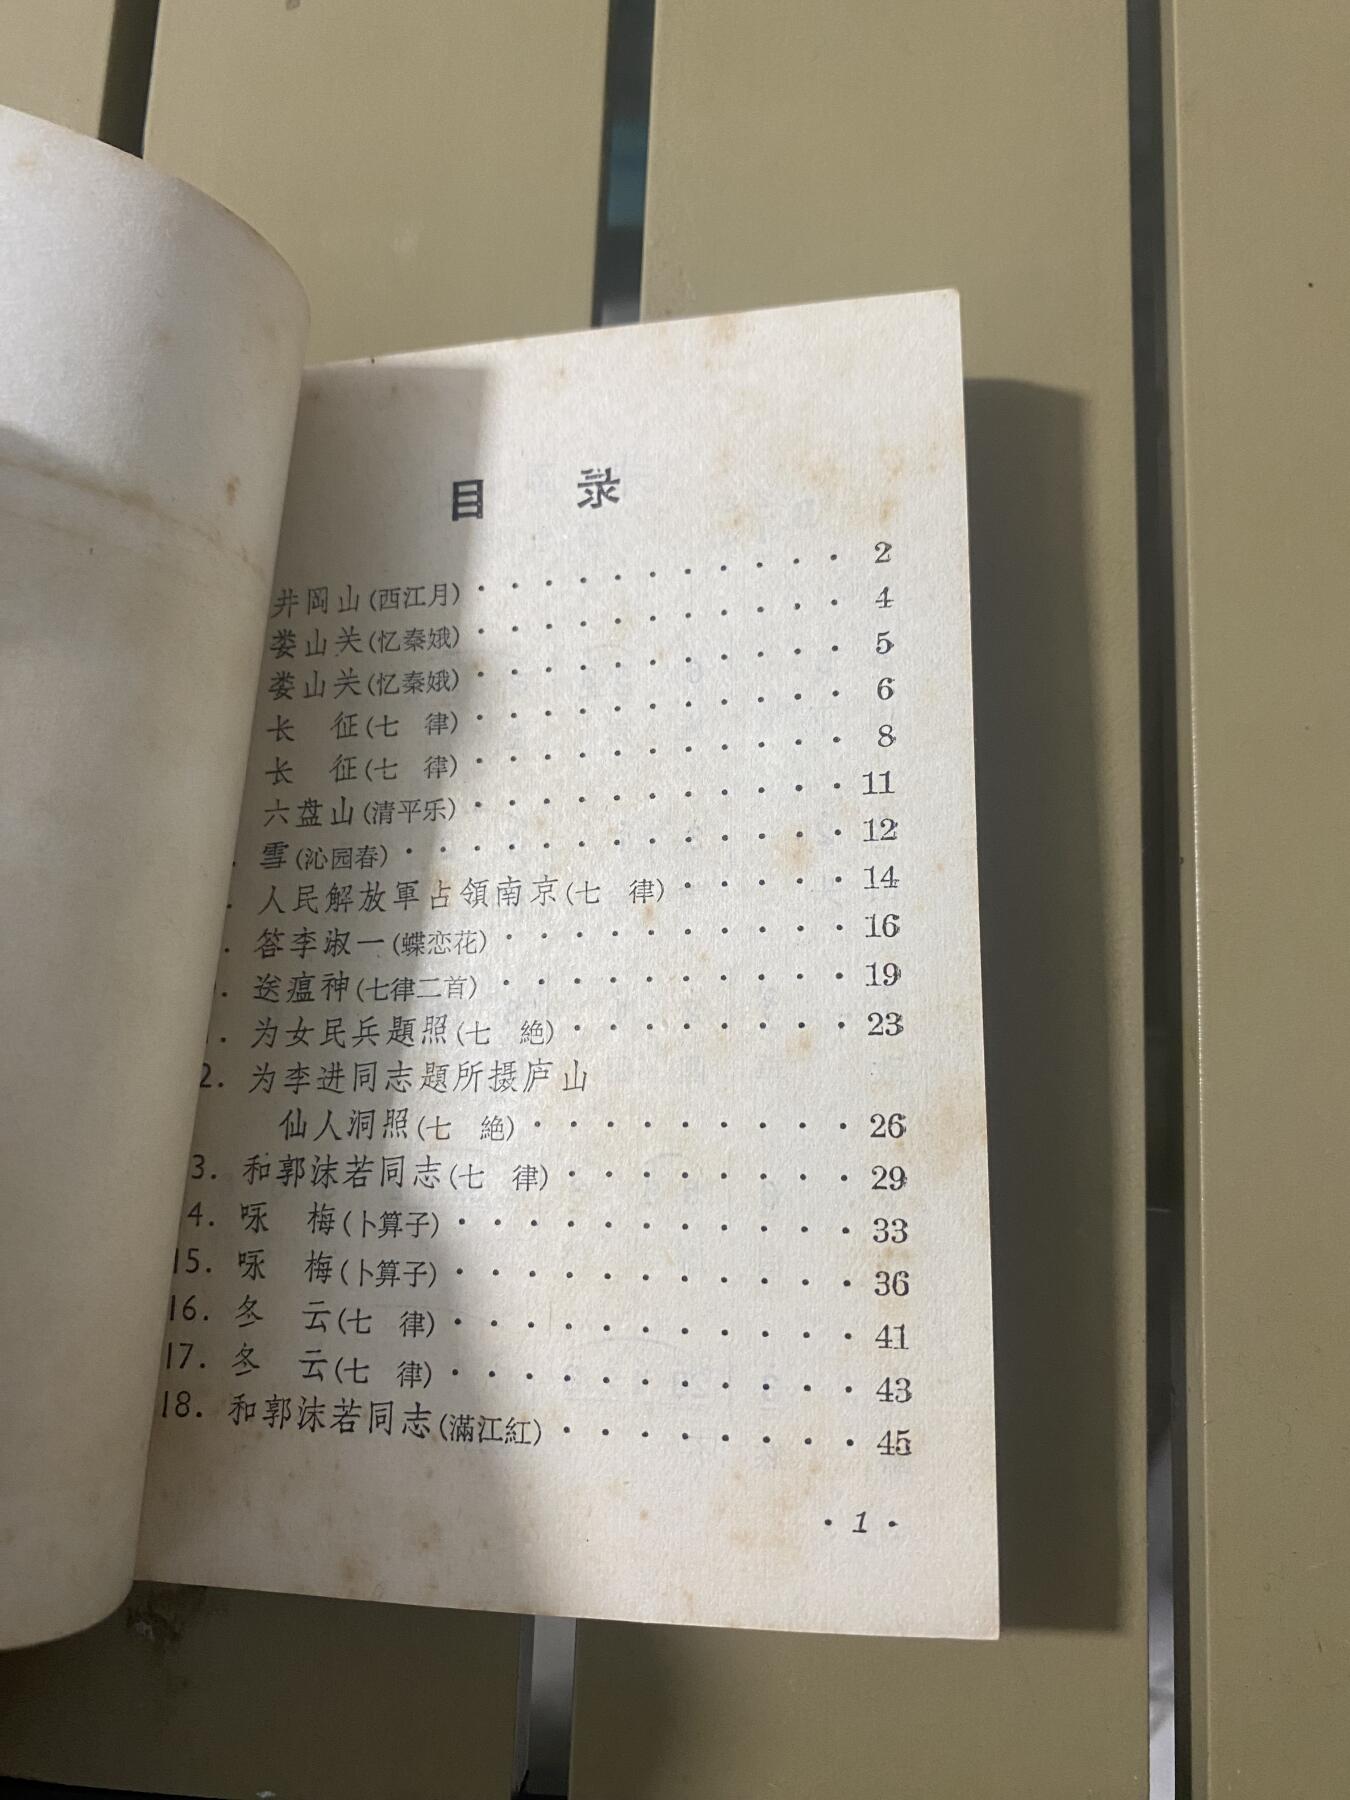 目 录
井岡山(西江月) · · · · · · · · · · · 2
娄山关(忆秦娥) · · · · · · · · · · · 4
娄山关(忆秦娥) · · · · · · · · · · · 5
长 征(七 律) · · · · · · · · · · · 6
长 征(七 律) · · · · · · · · · · · 8
六盘山(清平乐) · · · · · · · · · · · 11
. 雪(沁园春) · · · · · · · · · · · · · 12
. 人民解放軍占領南京(七 律) · · · · · 14
. 答李淑一(蝶恋花) · · · · · · · · · · 16
. 送瘟神(七律二首) · · · · · · · · · · 19
. 为女民兵題照(七 絶) · · · · · · · · 23
2. 为李进同志題所摄庐山
仙人洞照(七 絶) · · · · · · · · · 26
3. 和郭沫若同志(七 律) · · · · · · · · 29
4. 咏 梅(卜算子) · · · · · · · · · · · 33
15. 咏 梅(卜算子) · · · · · · · · · · · 36
16. 冬 云(七 律) · · · · · · · · · · · 41
17. 冬 云(七 律) · · · · · · · · · · · 43
18. 和郭沫若同志(滿江紅) · · · · · · · · 45
· 1 ·